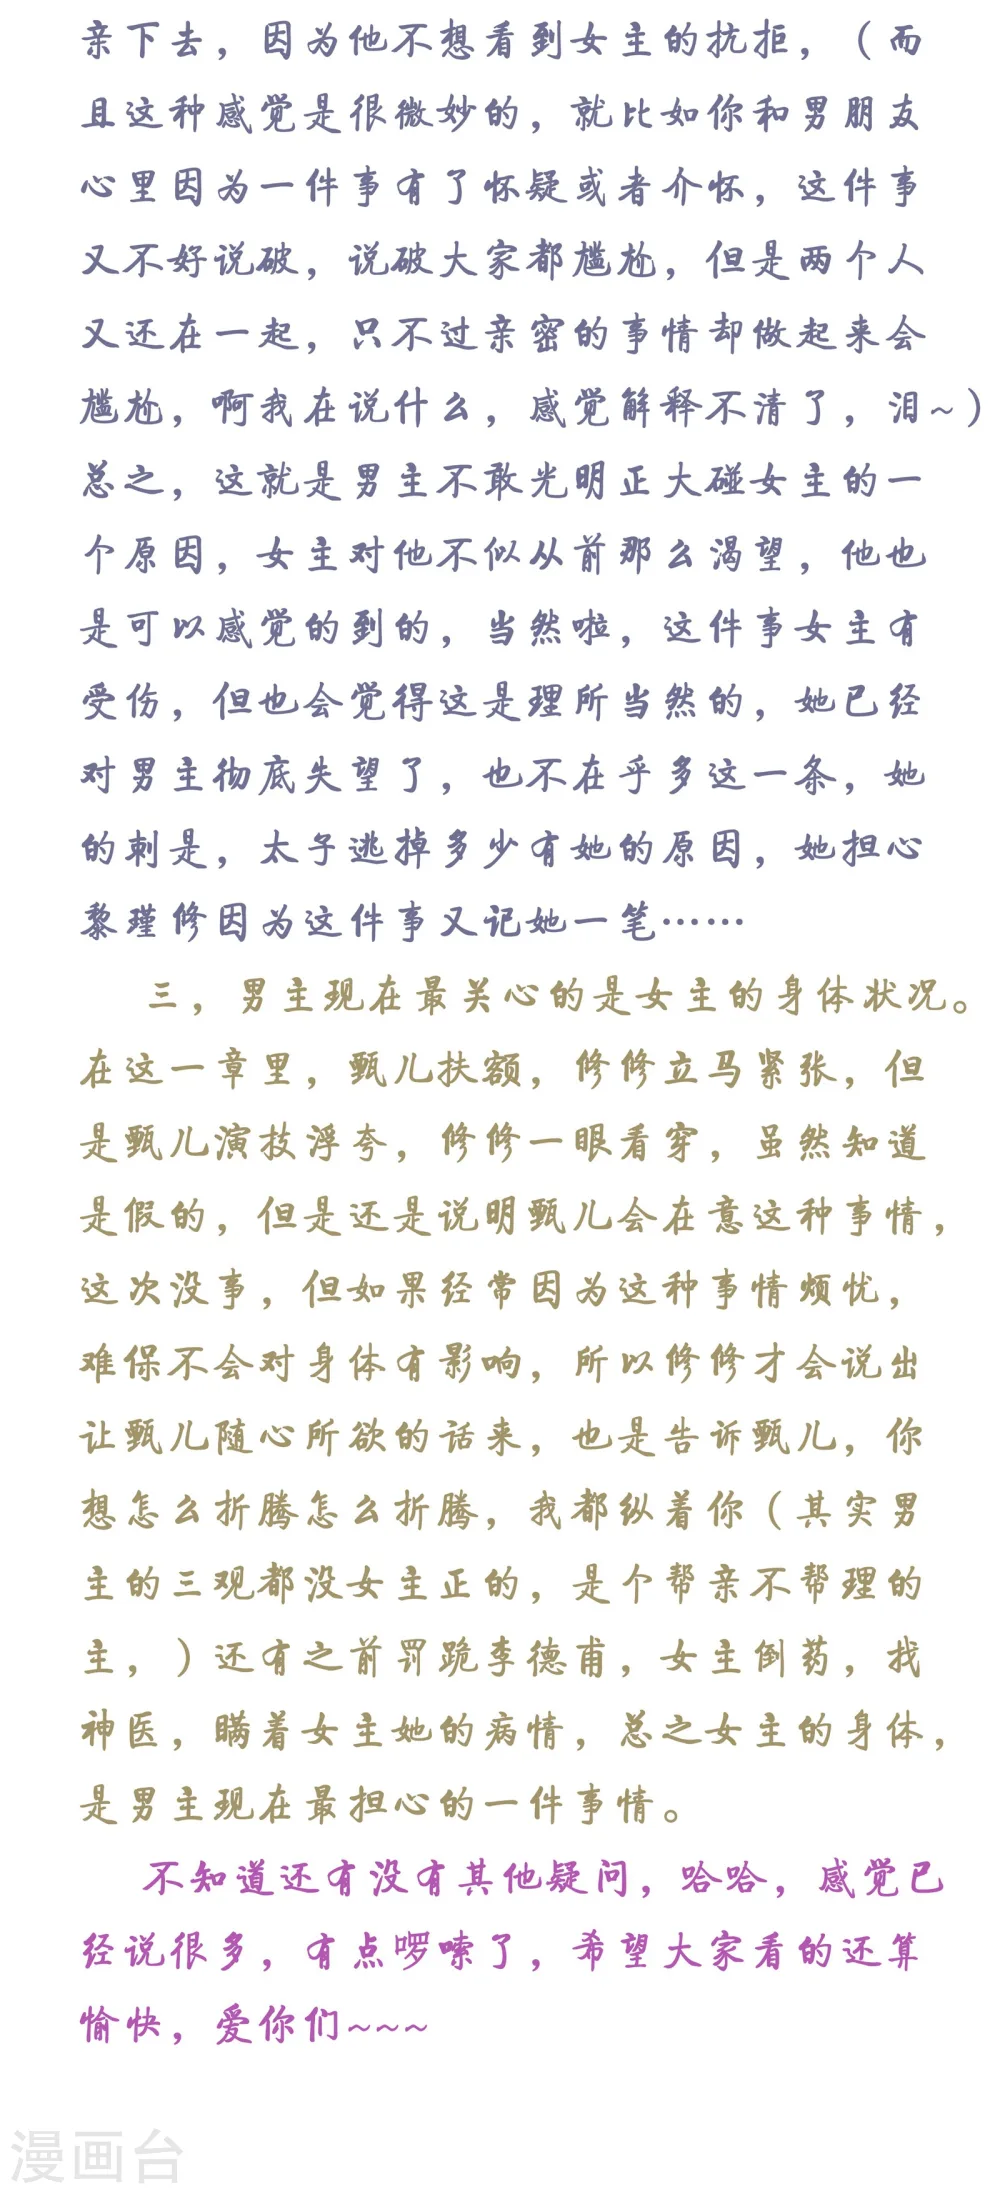 亲下去，因为他不想看到女主的抗拒，（而
且这种感觉是很微妙的，就比如你和男朋友
心里因为一件事有了怀疑或者介怀，这件事
又不好说破，说破大家都尴尬，但是两个人
又还在一起，只不过亲密的事情却做起来会
尴尬，啊我在说什么，感觉解释不清了，泪~）
总之，这就是男主不敢光明正大碰女主的一
个原因，女主对他不似从前那么渴望，他也
是可以感觉的到的，当然啦，这件事女主有
受伤，但也会觉得这是理所当然的，她已经
对男主彻底失望了，也不在乎多这一条，她
的刺是，太子逃掉多少有她的原因，她担心
黎瑾修因为这件事又记她一笔……
三，男主现在最关心的是女主的身体状况。
在这一章里，甄儿扶额，修修立马紧张，但
是甄儿演技浮夸，修修一眼看穿，虽然知道
是假的，但是还是说明甄儿会在意这种事情，
这次没事，但如果经常因为这种事情烦忧，
难保不会对身体有影响，所以修修才会说出
让甄儿随心所欲的话来，也是告诉甄儿，你
想怎么折腾怎么折腾，我都纵着你（其实男
主的三观都没女主正的，是个帮亲不帮理的
主，）还有之前罚跪李德甫，女主倒药，找
神医，瞒着女主她的病情，总之女主的身体，
是男主现在最担心的一件事情。
不知道还有没有其他疑问，哈哈，感觉已
经说很多，有点啰嗦了，希望大家看的还算
愉快，爱你们~~~
漫画台